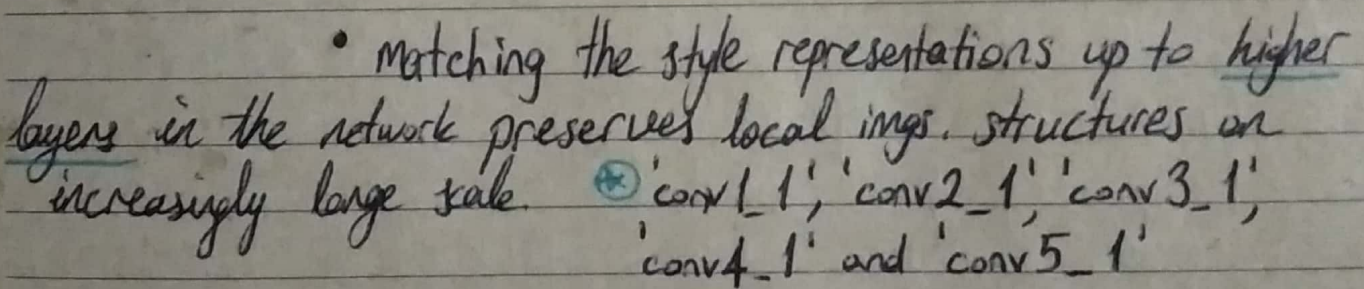 • Matching the style representations up to higher
layers in the network preserves local imgs. structures on
increasingly large scale. * 'conv1_1', 'conv2_1', 'conv3_1',
'conv4_1' and 'conv5_1'